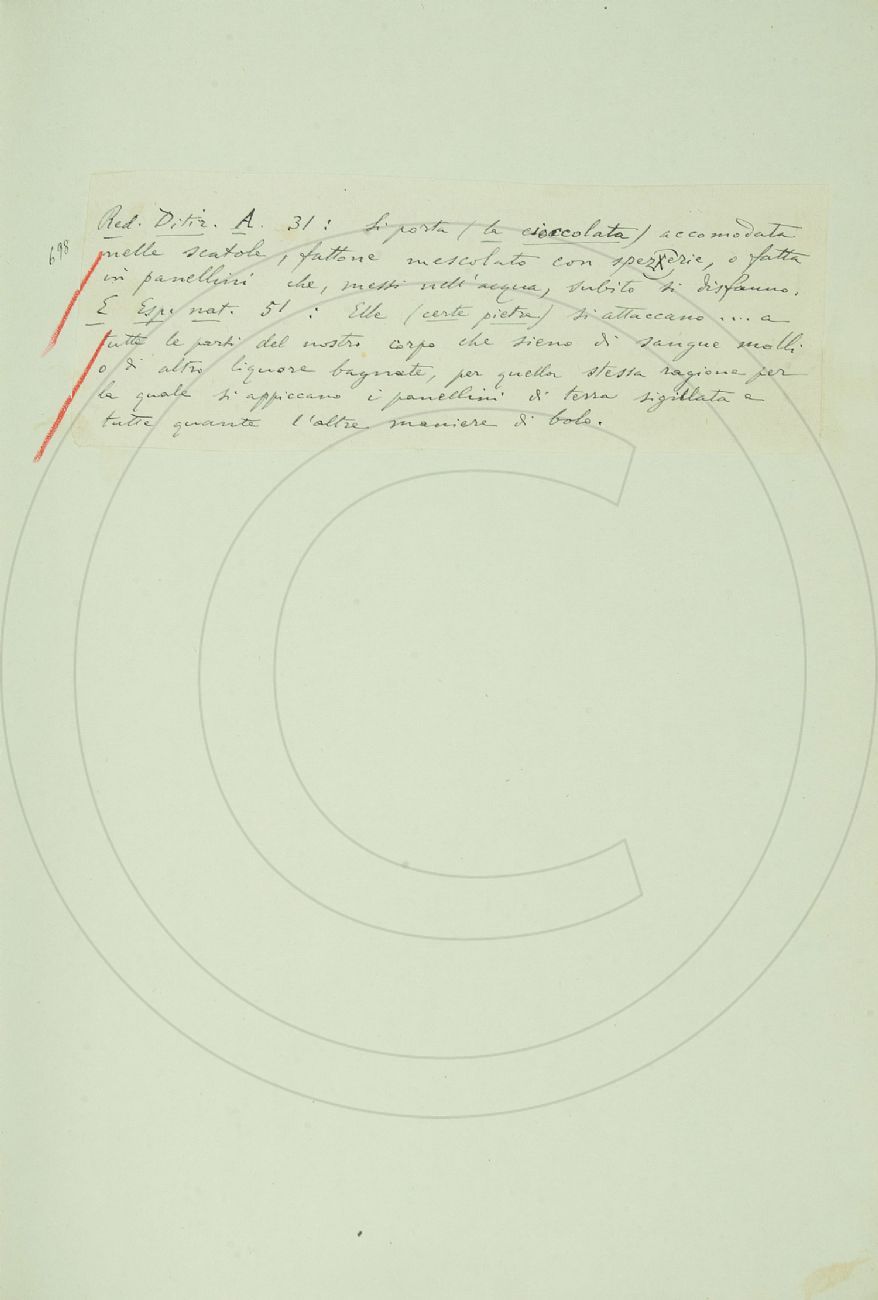 698
Red. Ditir. A. 31: Si porta (la cioccolata) accomodata
nelle scatole, fattone mescolato con spezierie, o fatta
in panellini che, messi nell'acqua, subito si disfanno.
E Esp. nat. 51: Elle (certe pietre) si attaccano .... a
tutte le parti del nostro corpo che sieno di sangue molli
o di altro liquore bagnate, per quella stessa ragione per
la quale si appiccano i panellini di terra sigillata e
tutte quante l'altre maniere di bolo.